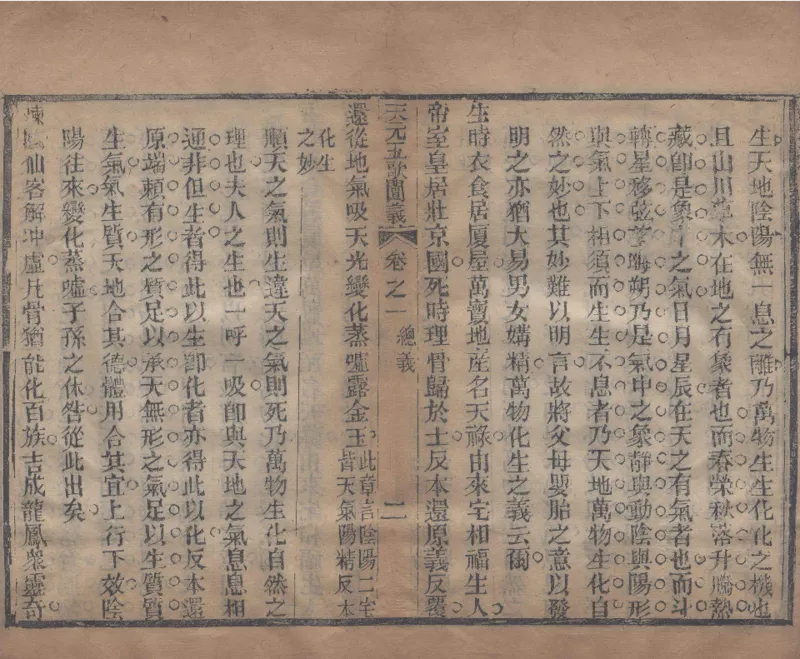 生天地陰陽無一息之離乃萬物生生化化之機也
且山川草木在地之有象者也而春榮秋落升騰熱
藏卽是象中之氣日月星辰在天之有氣者也而斗
轉星移弦望晦朔乃是氣中之象靜與動陰與陽形
與氣上下相須而生生不息者乃天地萬物生化自
然之妙也其妙難以明言故將父母媾胎之意以發
明之亦猶大易男女媾精萬物化生之義云爾
生時衣食居廈屋萬寶地産名天祿由來宅相福生人
帝室皇居壯京國死時理骨歸於土反本還原義反覆
天元五歌闡義 卷之一 總義 二
還從地氣吸天光變化蒸噓露金玉此章言陰陽二宅皆天氣陽精反本
化生之妙
順天之氣則生違天之氣則死乃萬物生化自然之
理也夫人之生也一呼一吸卽與天地之氣息息相
通非但生者得此以生卽化者亦得此以化反本還
原端賴有形之質足以承天無形之氣足以生質質
生氣氣生質天地合其德體用合其宜上行下效陰
陽往來變化蒸噓子孫之休咎從此出矣
煉仙客解冲虛凡骨猶能化百族吉成龍鳳衆靈奇